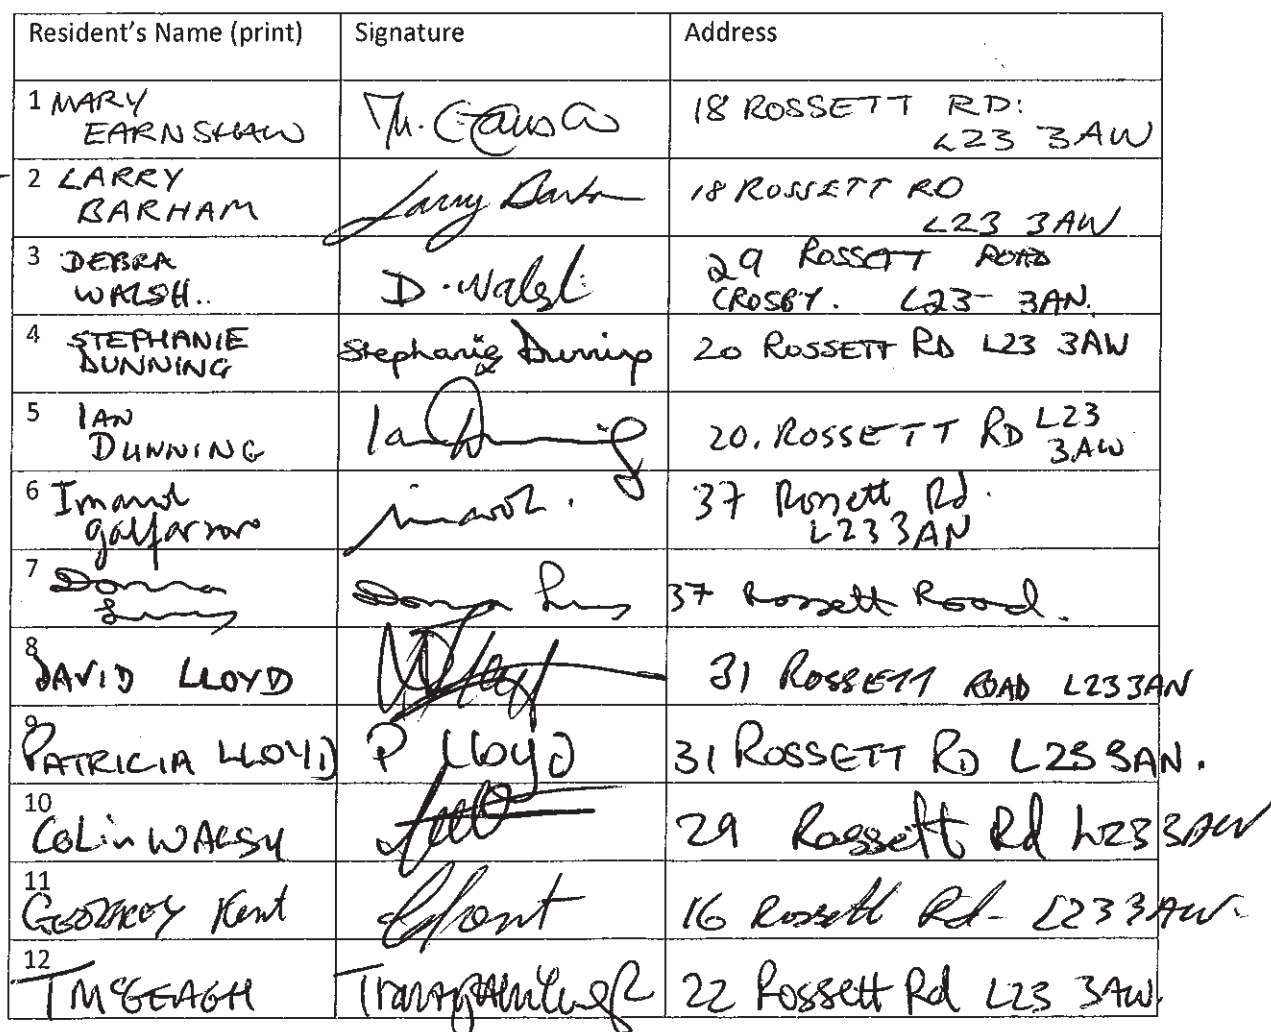 Resident's Name (print) Signature Address
1 MARY EARNSHAW M. 18 ROSSETT RD: L23 3AW
2 LARRY BARHAM Larry Barham 18 ROSSETT RD L23 3AW
3 DEBRA WALSH.. D. Walsh 29 ROSSETT ROAD CROSBY. L23- 3AN.
4 STEPHANIE DUNNING Stephanie Dunning 20 ROSSETT RD L23 3AW
5 IAN DUNNING Ian Dunning 20. ROSSETT RD L23 3AW
6 37 Rossett Rd. L23 3AN
7 Donna Donna 37 Rossett Road.
8 DAVID LLOYD 31 ROSSETT ROAD L23 3AN
9 PATRICIA LLOYD P Lloyd 31 ROSSETT RD L23 3AN.
10 COLin WALSH 29 Rossett Rd L23 3AW
11 GEOFFREY Kent 16 Rossett Rd- L23 3AW.
12 T MCGEAGH 22 Rossett Rd L23 3AW.